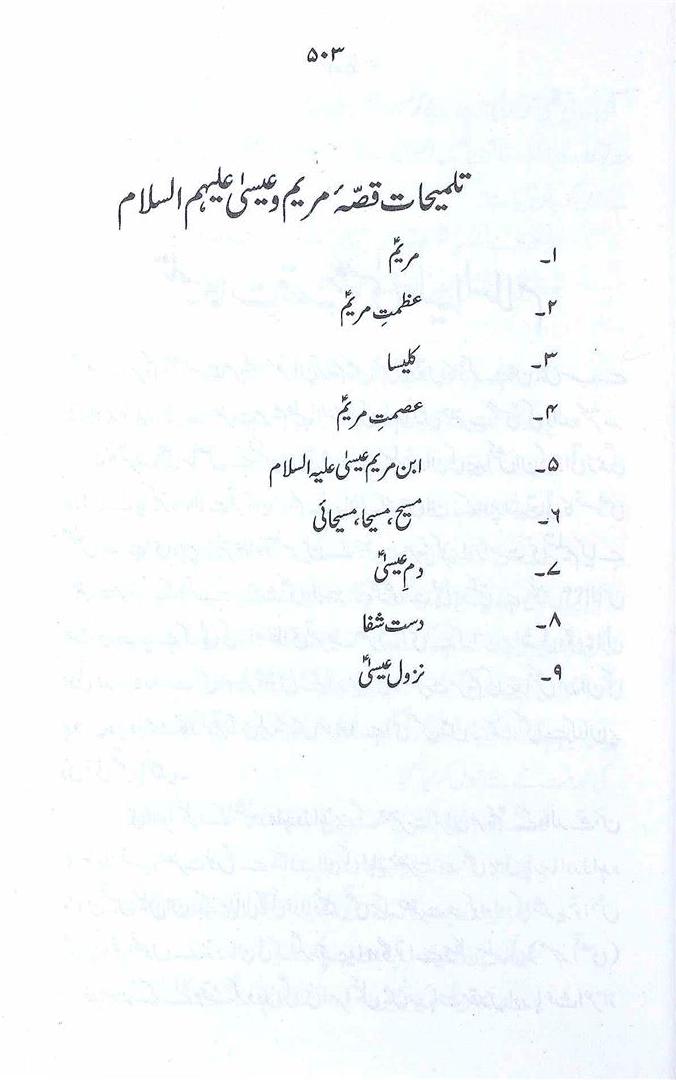 ۵۰۳
تلمیحات قصّۂ مریم و عیسیٰ علیہم السلام
۱۔ مریمؑ
۲۔ عظمتِ مریمؑ
۳۔ کلیسا
۴۔ عصمتِ مریمؑ
۵۔ ابن مریم عیسیٰ علیہ السلام
۶۔ مسیح، مسیحا، مسیحائی
۷۔ دمِ عیسیٰؑ
۸۔ دست شفا
۹۔ نزول عیسیٰؑ